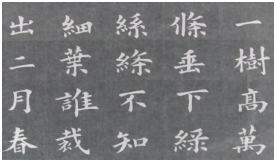 一樹髙萬
條垂下綠
絲絛不知
細葉誰裁
出二月春